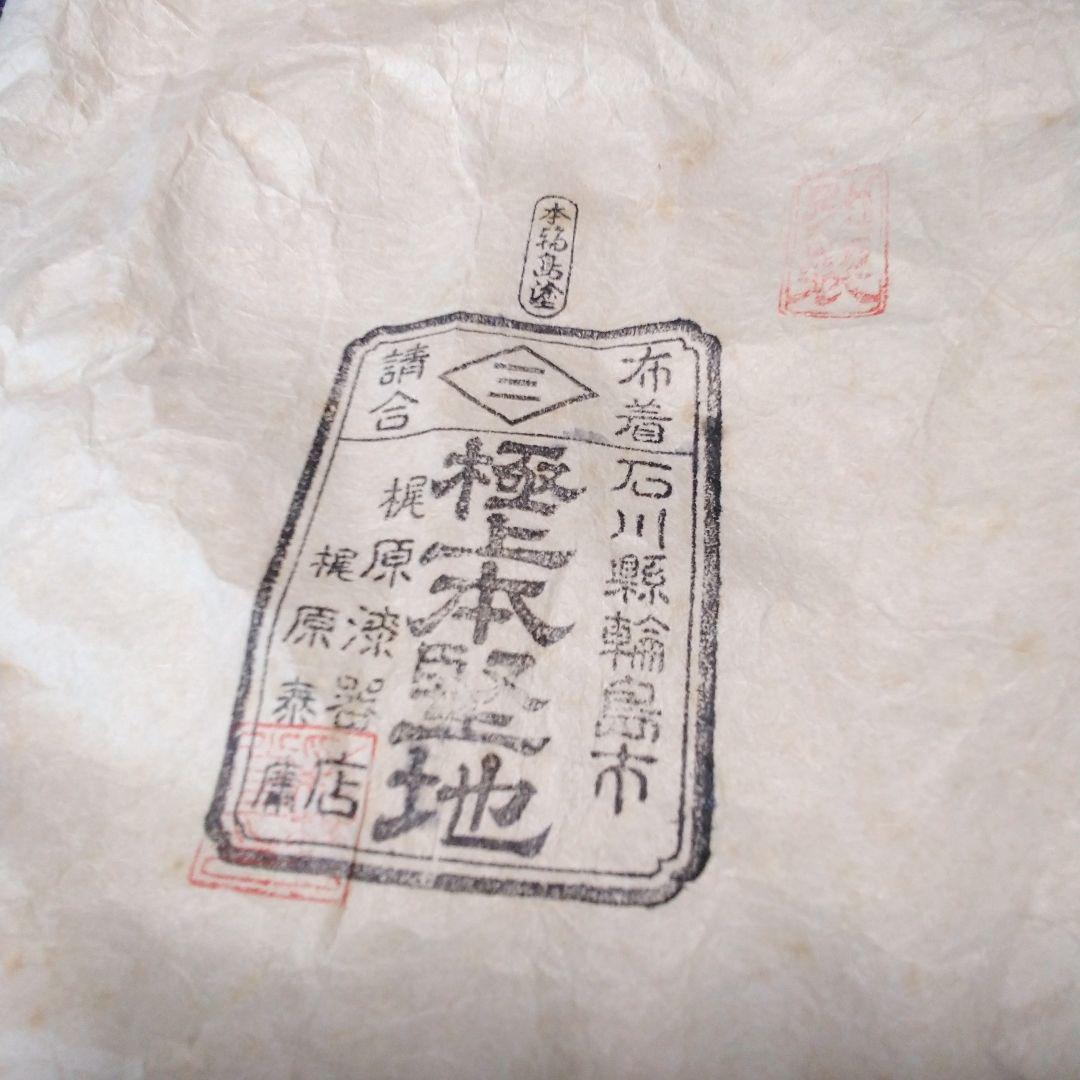 本輪島塗
布着
三
請合
石川縣輪島市
極上本堅地
梶原漆器店
梶原泰
製